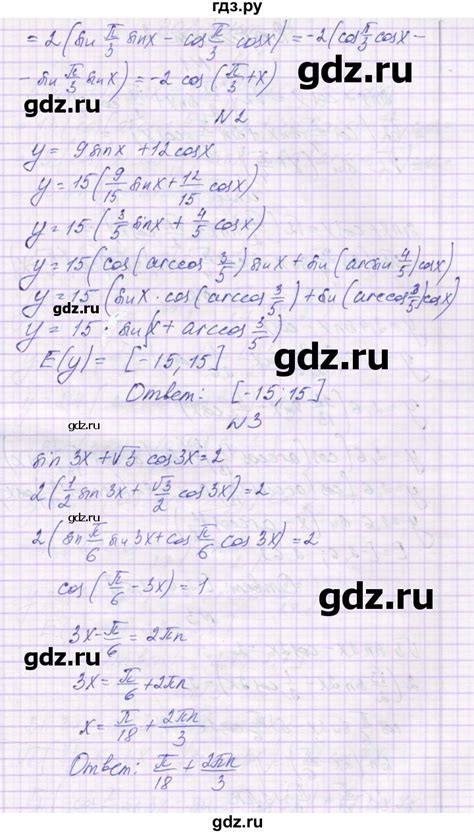 гдз.ру
= 2(sin π/3 sinx - cos π/3 cosx) = -2(cos π/3 cosx -
- sin π/3 sinx) = -2 cos(π/3 + x)
gdz.ru
gdz.ru
N2
y = 9sinx + 12cosx
y = 15(9/15 sinx + 12/15 cosx)
gdz.ru
y = 15(3/5 sinx + 4/5 cosx)
gdz.ru
y = 15(cos(arccos 3/5) sinx + sin(arcsin 4/5) cosx)
y = 15(sinx · cos(arccos 3/5) + sin(arccos 3/5) cosx)
gdz.ru
y = 15 · sin(x + arccos 3/5)
E(y) = [-15; 15]
gdz.ru
Ответ: [-15; 15]
gdz.ru
N3
sin 3x + √3 cos3x = 2
gdz.ru
2(1/2 sin 3x + √3/2 cos3x) = 2
gdz.ru
2(sin π/6 sin3x + cos π/6 cos 3x) = 2
cos(π/6 - 3x) = 1
gdz.ru
3x - π/6 = 2πn
gdz.ru
3x = π/6 + 2πn
gdz.ru
x = π/18 + 2πn/3
Ответ: π/18 + 2πn/3
gdz.ru
gdz.ru